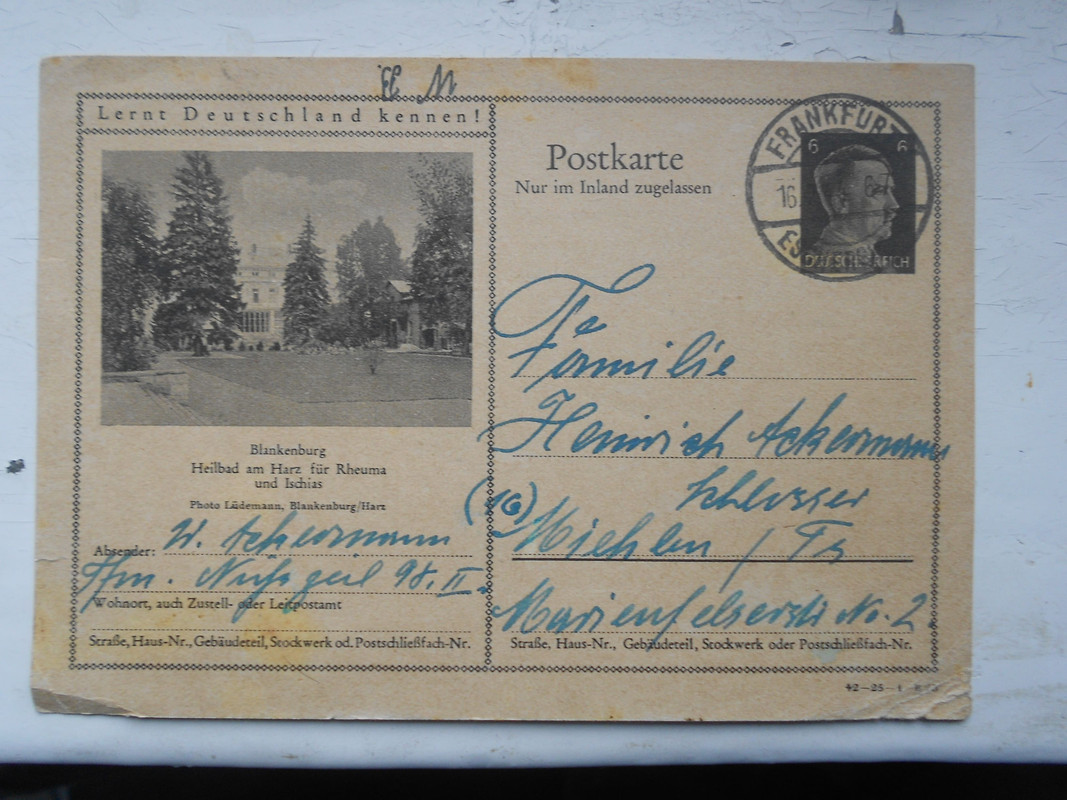 Lernt Deutschland kennen!
Blankenburg
Heilbad am Harz für Rheuma
und Ischias
Photo Lüdemann, Blankenburg/Harz
Absender: W. Ackermann
Ffm. 98. II.
Wohnort, auch Zustell- oder Leitpostamt
Straße, Haus-Nr., Gebäudeteil, Stockwerk od. Postschließfach-Nr.
Postkarte
Nur im Inland zugelassen
FRANKFURT
16.
6 6
DEUTSCHES REICH
Familie
Heinrich Ackermann
Schlosser
(16) Miehlen / Ts
Marienfelserstr No. 2
Straße, Haus-Nr., Gebäudeteil, Stockwerk oder Postschließfach-Nr.
42-25-1